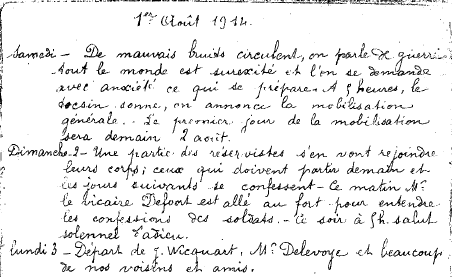 1er Août 1914.
Samedi - De mauvais bruits circulent, on parle de guerre
tout le monde est surexité et l'on se demande
avec anxiété ce qui se prépare. A 5 heures, le
tocsin sonne, on annonce la mobilisation
générale. - Le premier jour de la mobilisation
sera demain 2 août.
Dimanche 2 - Une partie des réservistes s'en vont rejoindre
leurs corps; ceux qui doivent partir demain et
les jours suivants se confessent - Ce matin Mr
le vicaire Defoort est allé au fort pour entendre
les confessions des soldats. - Ce soir à 5h. salut
solennel
Lundi 3 - Départ de J. Wicquart, Mr Delevoye et beaucoup
de nos voisins et amis.